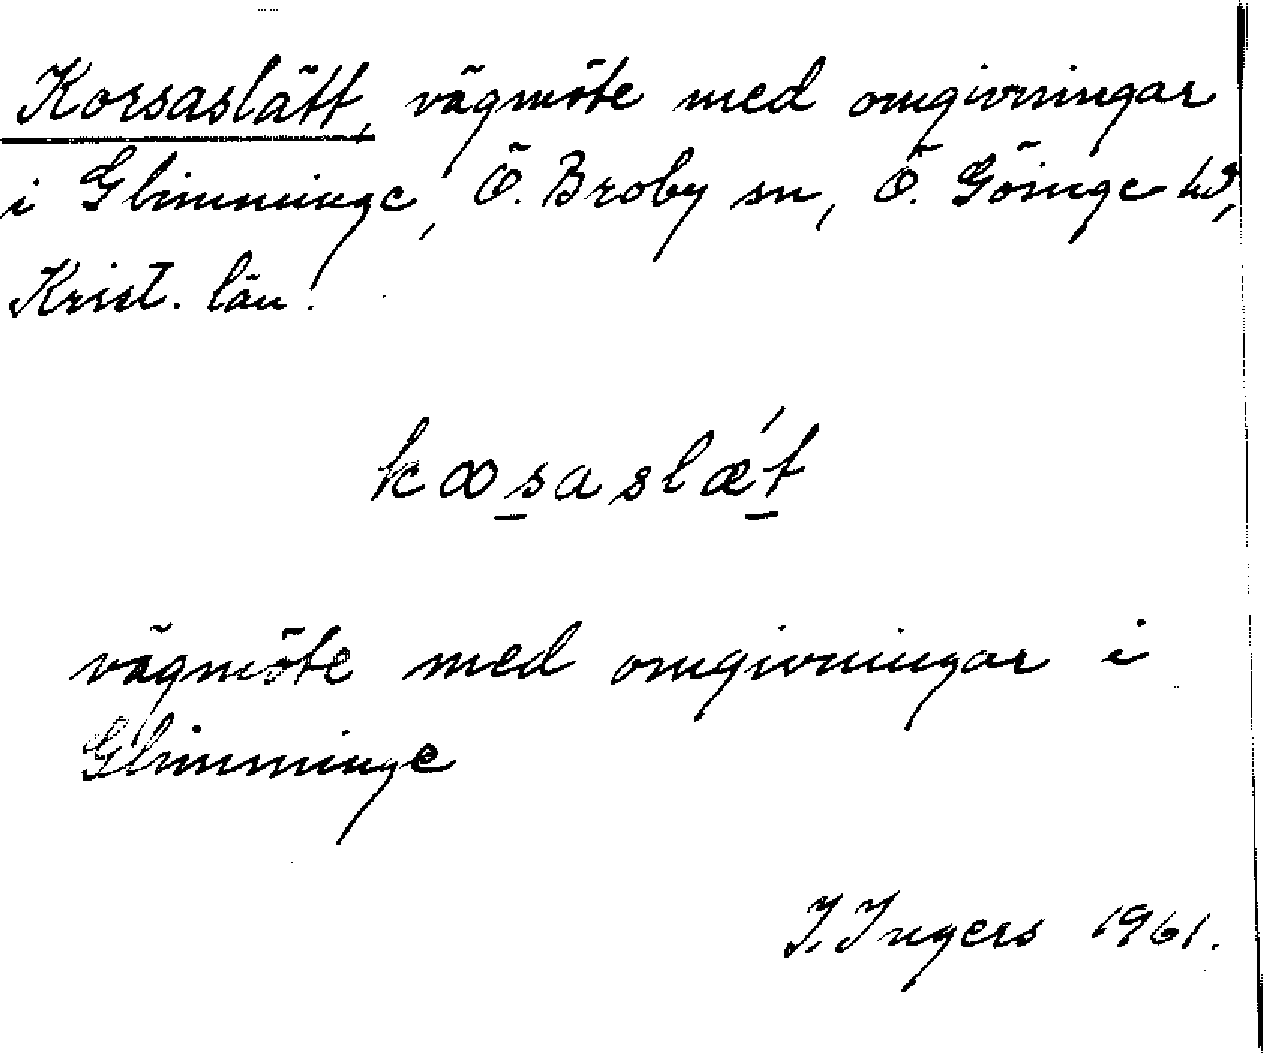 Korsaslätt, vägmöte med omgivningar
i Glimminge, Ö. Broby sn, Ö. Göinge hd,
Krist. län.
kꝏsaslǽt
vägmöte med omgivningar i
Glimminge
I. Ingers 1961.